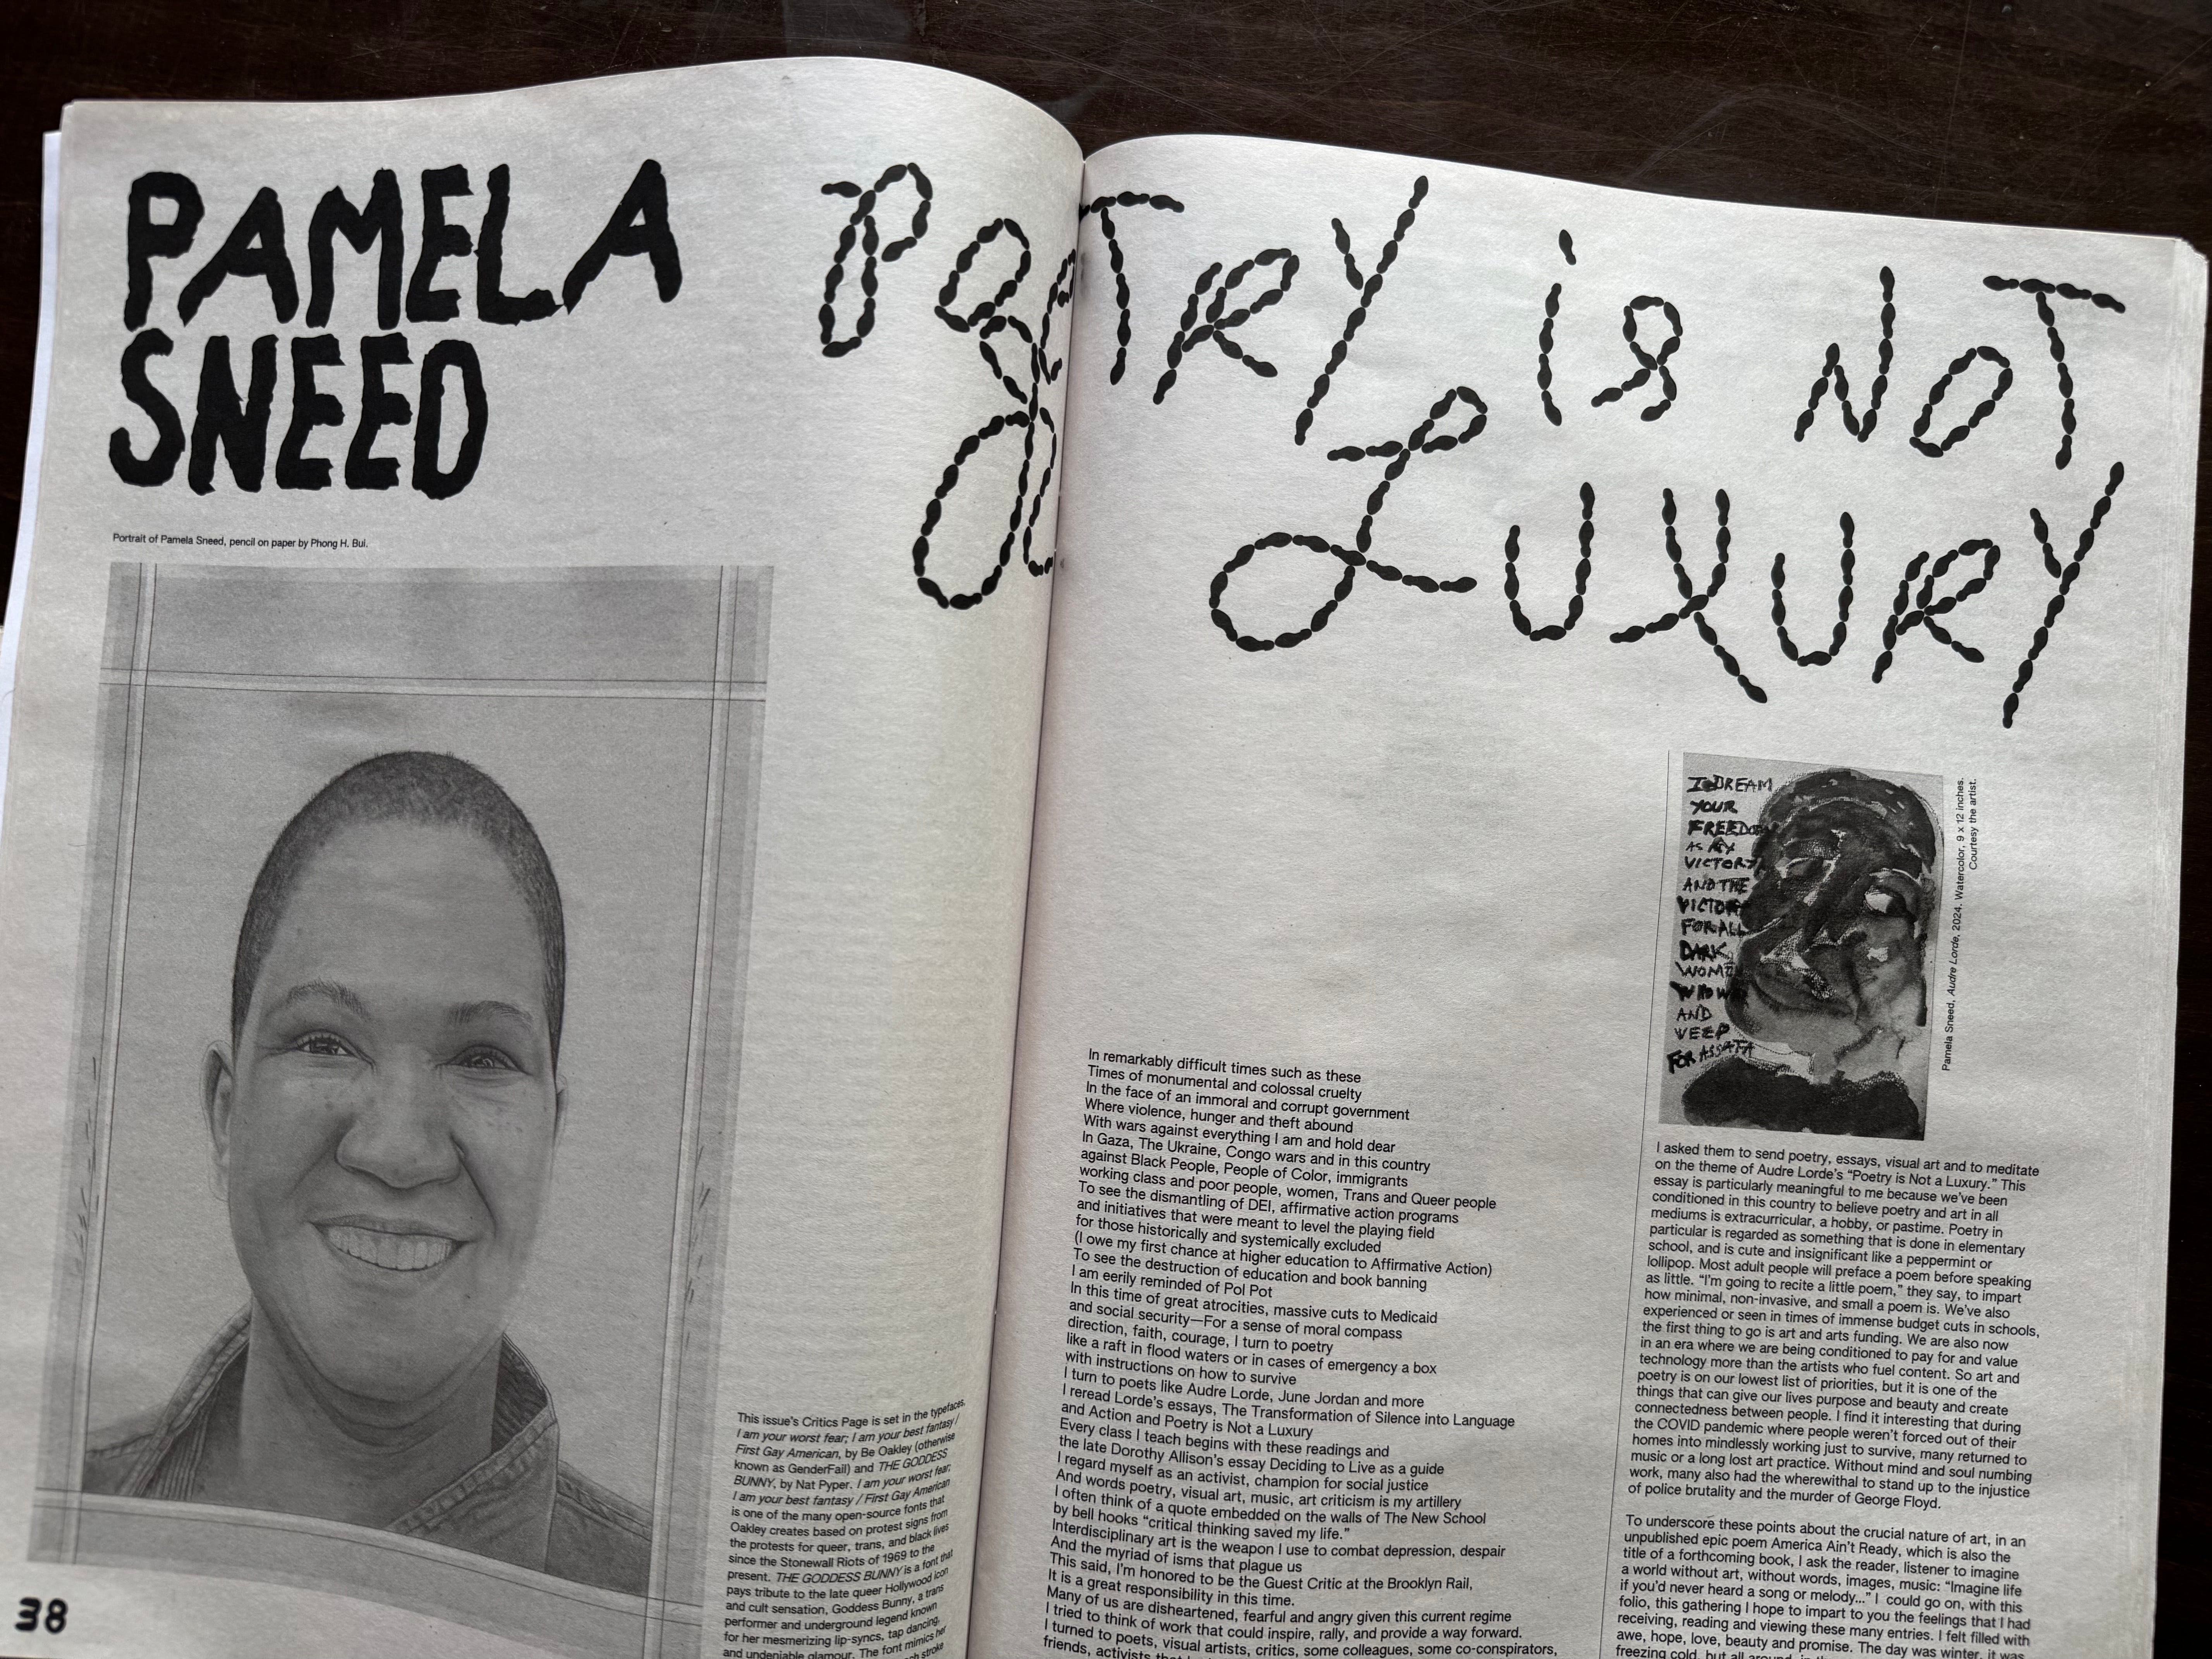 PAMELA
SNEED
Portrait of Pamela Sneed, pencil on paper by Phong H. Bui.
This issue's Critics Page is set in the typefaces,
I am your worst fear; I am your best fantasy /
First Gay American, by Be Oakley (otherwise
known as GenderFail) and THE GODDESS
BUNNY, by Nat Pyper. I am your worst fear;
I am your best fantasy / First Gay American
is one of the many open-source fonts that
Oakley creates based on protest signs from
the protests for queer, trans, and black lives
since the Stonewall Riots of 1969 to the
present. THE GODDESS BUNNY is a font that
pays tribute to the late queer Hollywood icon
and cult sensation, Goddess Bunny, a trans
performer and underground legend known
for her mesmerizing lip-syncs, tap dancing,
and undeniable glamour. The font mimics her
stroke
38
POETRY is NOT
a LUXURY
In remarkably difficult times such as these
Times of monumental and colossal cruelty
In the face of an immoral and corrupt government
Where violence, hunger and theft abound
With wars against everything I am and hold dear
In Gaza, The Ukraine, Congo wars and in this country
against Black People, People of Color, immigrants
working class and poor people, women, Trans and Queer people
To see the dismantling of DEI, affirmative action programs
and initiatives that were meant to level the playing field
for those historically and systemically excluded
(I owe my first chance at higher education to Affirmative Action)
To see the destruction of education and book banning
I am eerily reminded of Pol Pot
In this time of great atrocities, massive cuts to Medicaid
and social security—For a sense of moral compass
direction, faith, courage, I turn to poetry
like a raft in flood waters or in cases of emergency a box
with instructions on how to survive
I turn to poets like Audre Lorde, June Jordan and more
I reread Lorde's essays, The Transformation of Silence into Language
and Action and Poetry is Not a Luxury
Every class I teach begins with these readings and
the late Dorothy Allison's essay Deciding to Live as a guide
I regard myself as an activist, champion for social justice
And words poetry, visual art, music, art criticism is my artillery
I often think of a quote embedded on the walls of The New School
by bell hooks "critical thinking saved my life."
Interdisciplinary art is the weapon I use to combat depression, despair
And the myriad of isms that plague us
This said, I'm honored to be the Guest Critic at the Brooklyn Rail,
It is a great responsibility in this time.
Many of us are disheartened, fearful and angry given this current regime
I tried to think of work that could inspire, rally, and provide a way forward.
I turned to poets, visual artists, critics, some colleagues, some co-conspirators,
friends, activists that
I DREAM
YOUR
FREEDOM
AS MY
VICTORY
AND THE
VICTORY
FOR ALL
DARK
WOMEN
WHO
AND
WEEP
FOR ASSATA
Pamela Sneed, Audre Lorde, 2024. Watercolor, 9 x 12 inches.
Courtesy the artist.
I asked them to send poetry, essays, visual art and to meditate
on the theme of Audre Lorde's "Poetry is Not a Luxury." This
essay is particularly meaningful to me because we've been
conditioned in this country to believe poetry and art in all
mediums is extracurricular, a hobby, or pastime. Poetry in
particular is regarded as something that is done in elementary
school, and is cute and insignificant like a peppermint or
lollipop. Most adult people will preface a poem before speaking
as little. "I'm going to recite a little poem," they say, to impart
how minimal, non-invasive, and small a poem is. We've also
experienced or seen in times of immense budget cuts in schools,
the first thing to go is art and arts funding. We are also now
in an era where we are being conditioned to pay for and value
technology more than the artists who fuel content. So art and
poetry is on our lowest list of priorities, but it is one of the
things that can give our lives purpose and beauty and create
connectedness between people. I find it interesting that during
the COVID pandemic where people weren't forced out of their
homes into mindlessly working just to survive, many returned to
music or a long lost art practice. Without mind and soul numbing
work, many also had the wherewithal to stand up to the injustice
of police brutality and the murder of George Floyd.
To underscore these points about the crucial nature of art, in an
unpublished epic poem America Ain't Ready, which is also the
title of a forthcoming book, I ask the reader, listener to imagine
a world without art, without words, images, music: "Imagine life
if you'd never heard a song or melody..." I could go on, with this
folio, this gathering I hope to impart to you the feelings that I had
receiving, reading and viewing these many entries. I felt filled with
awe, hope, love, beauty and promise. The day was winter, it was
freezing cold, but all around